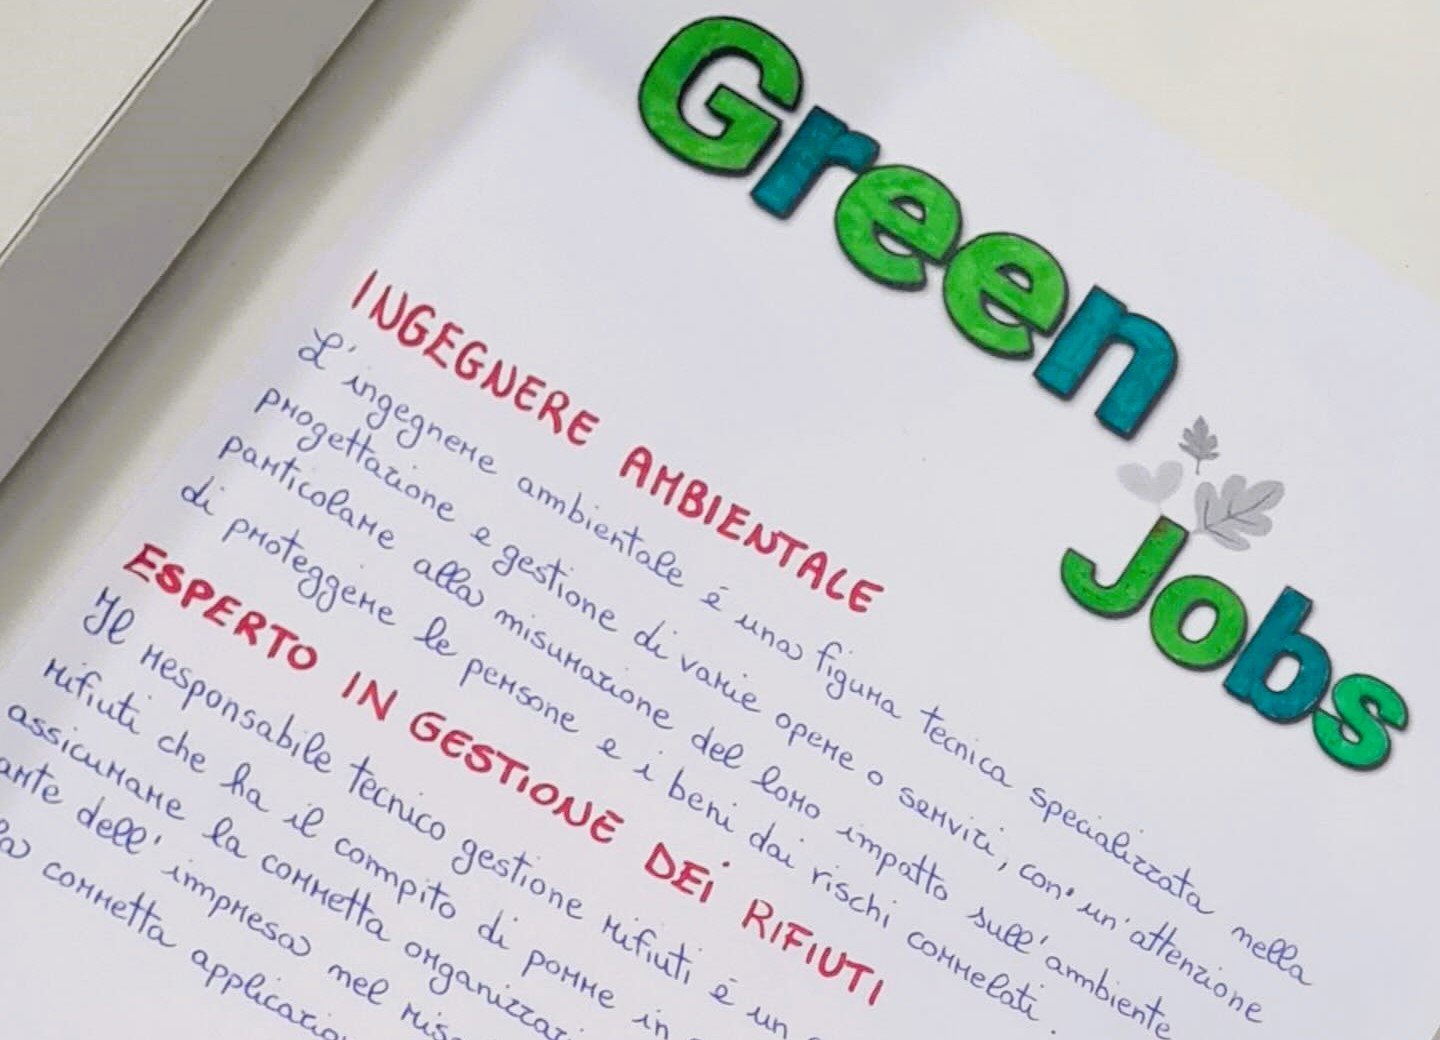 Green
Jobs
INGEGNERE AMBIENTALE
L'ingegnere ambientale é una figura tecnica specializzata nella
progettazione e gestione di varie opere o servizi, con un'attenzione
particolare alla misurazione del loro impatto sull'ambiente
di proteggere le persone e i beni dai rischi correlati.
ESPERTO IN GESTIONE DEI RIFIUTI
Il responsabile tecnico gestione rifiuti é un
rifiuti che ha il compito di porre in
assicurare la corretta
dell'impresa nel
corretta